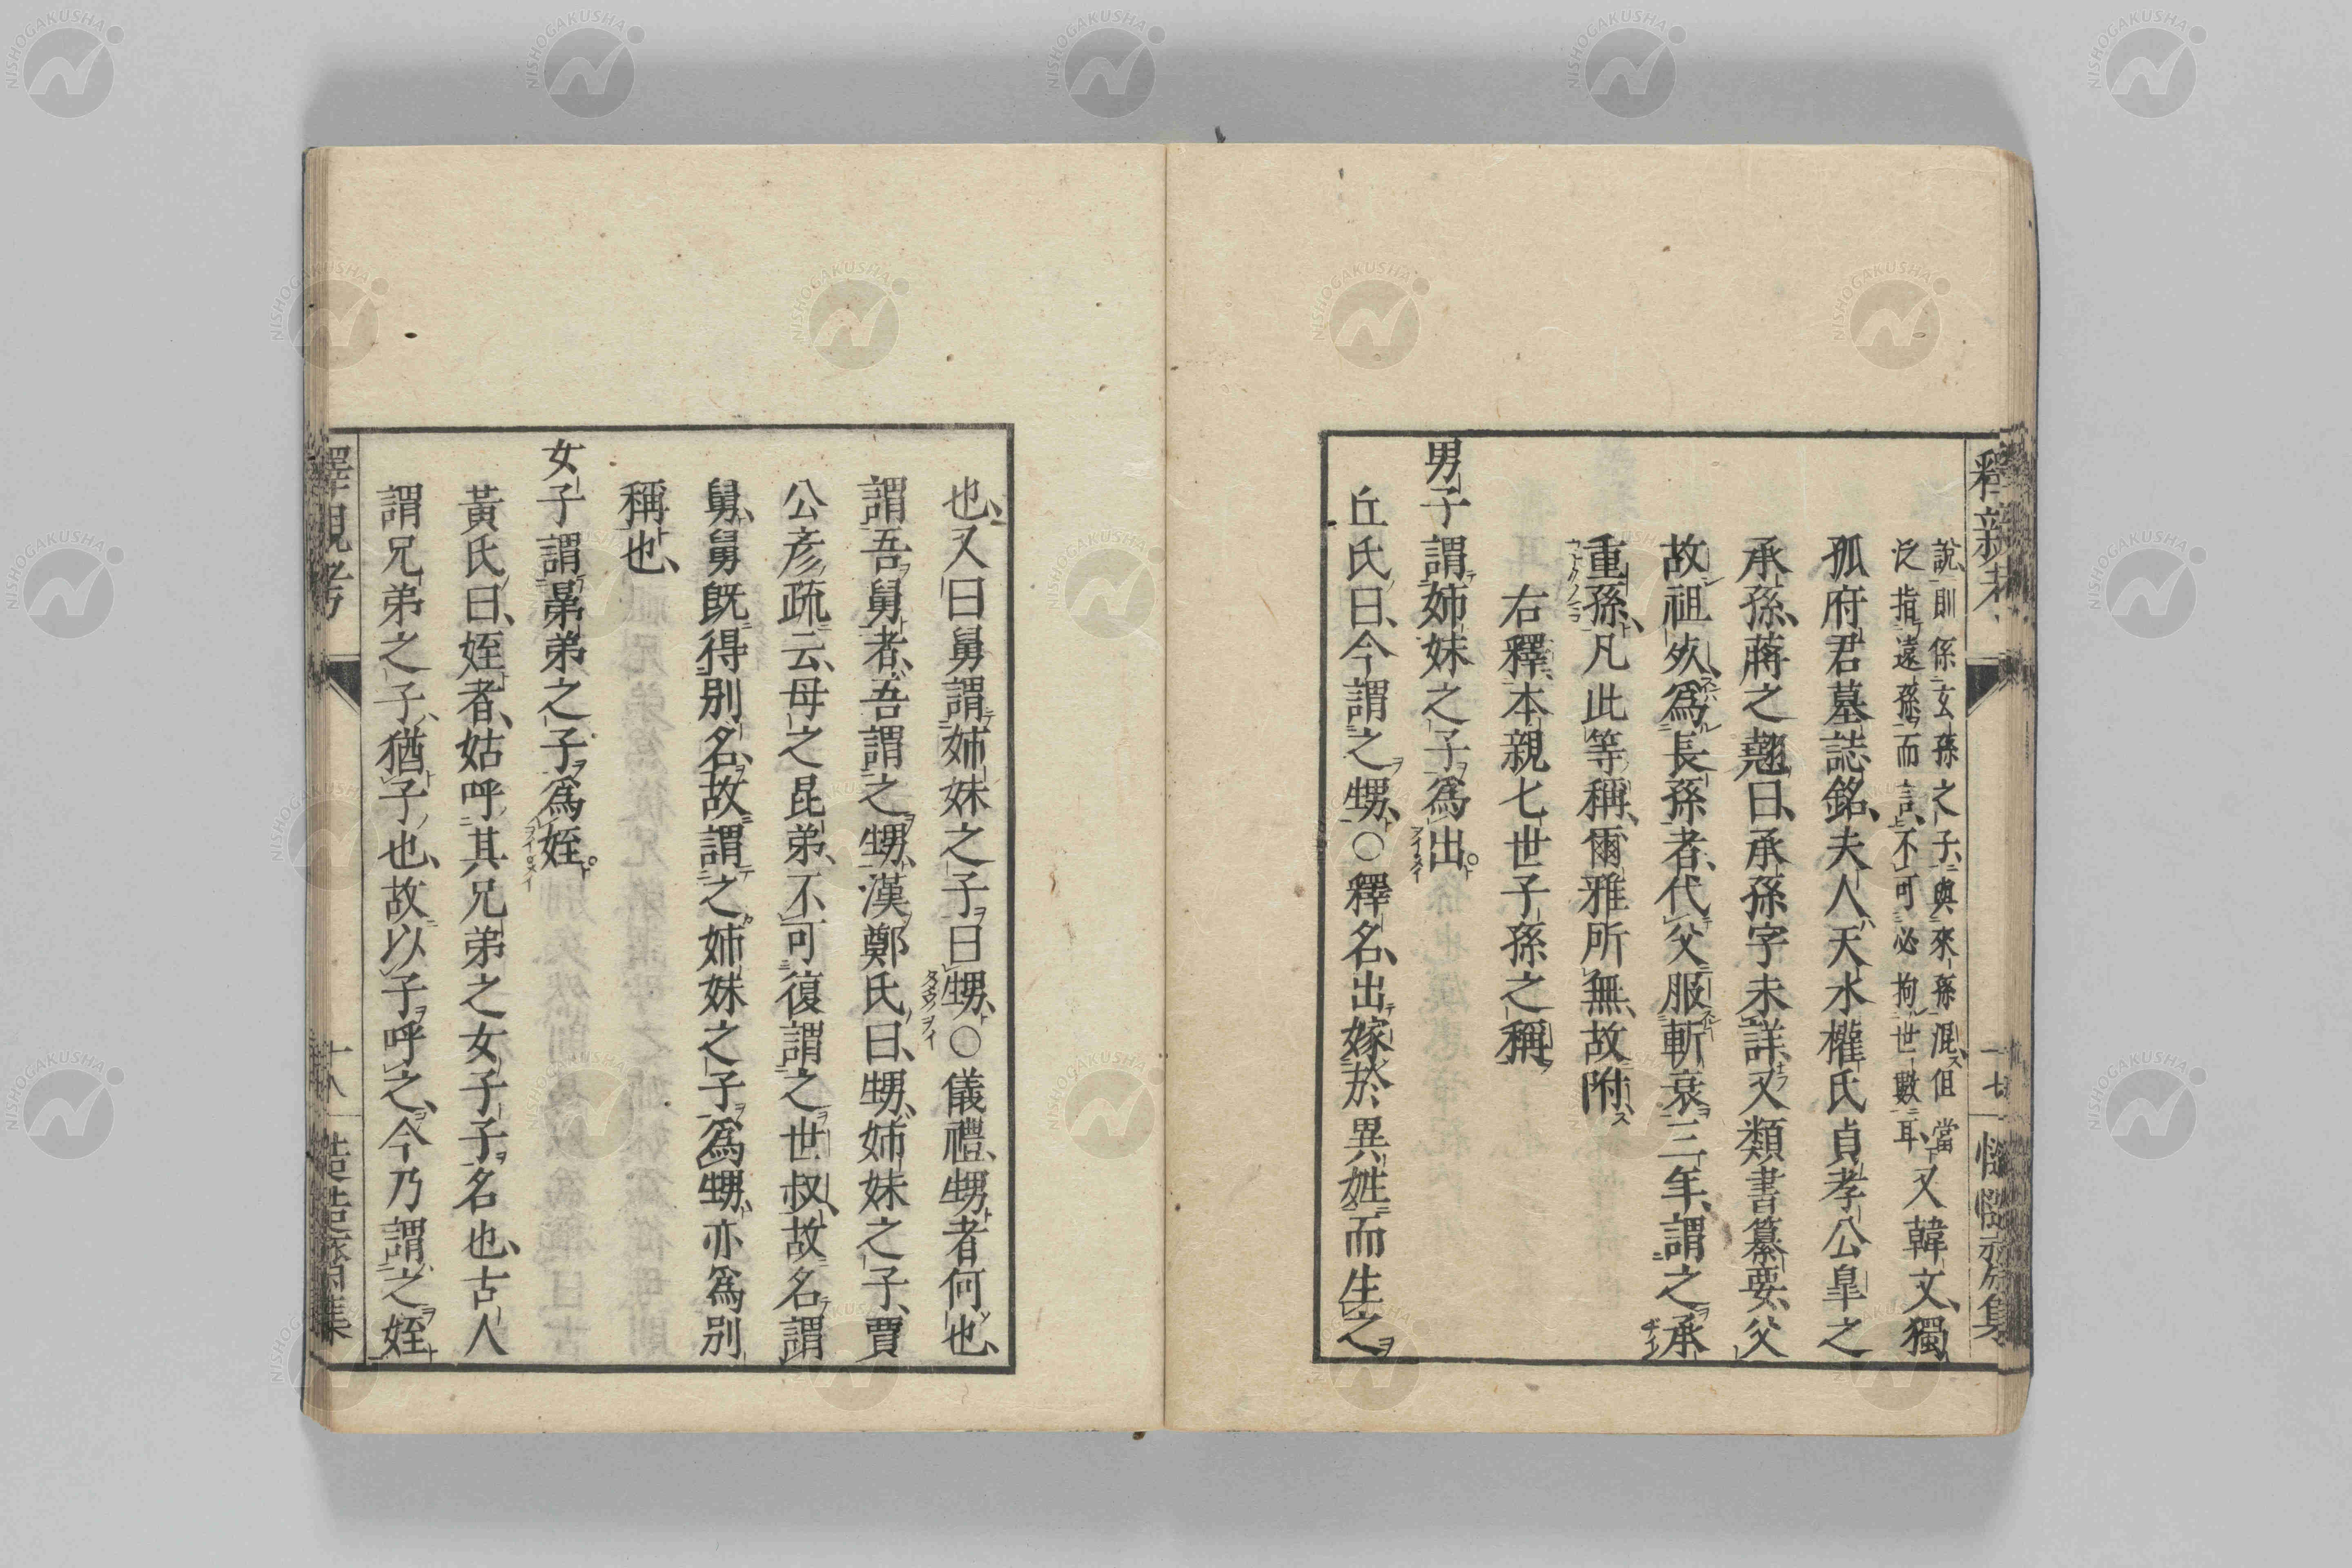 釋親考
十七
説則係玄孫之子與來孫混但當
泛指遠孫而言不可必拘世數耳又韓文獨
孤府君墓誌銘夫人天水權氏貞孝公皐之
承孫蔣之翹曰承孫字未詳又類書纂要父
故祖歿爲長孫者代父服斬衰三年謂之承
重孫凡此等稱爾雅所無故附
右釋本親七世子孫之稱
男子謂姉妹之子爲出
丘氏曰今謂之甥○釋名出嫁於異姓而生之
也又曰舅謂姉妹之子曰甥○儀禮甥者何也
謂吾舅者吾謂之甥漢鄭氏曰甥姉妹之子賈
公彦疏云母之昆弟不可復謂之世叔故名謂
舅舅既得別名故謂之姉妹之子爲甥亦爲別
稱也
女子謂晜弟之子爲姪
黃氏曰姪者姑呼其兄弟之女子子名也古人
謂兄弟之子猶子也故以子呼之今乃謂之姪
釋親考
十八
NISHOGAKUSHA